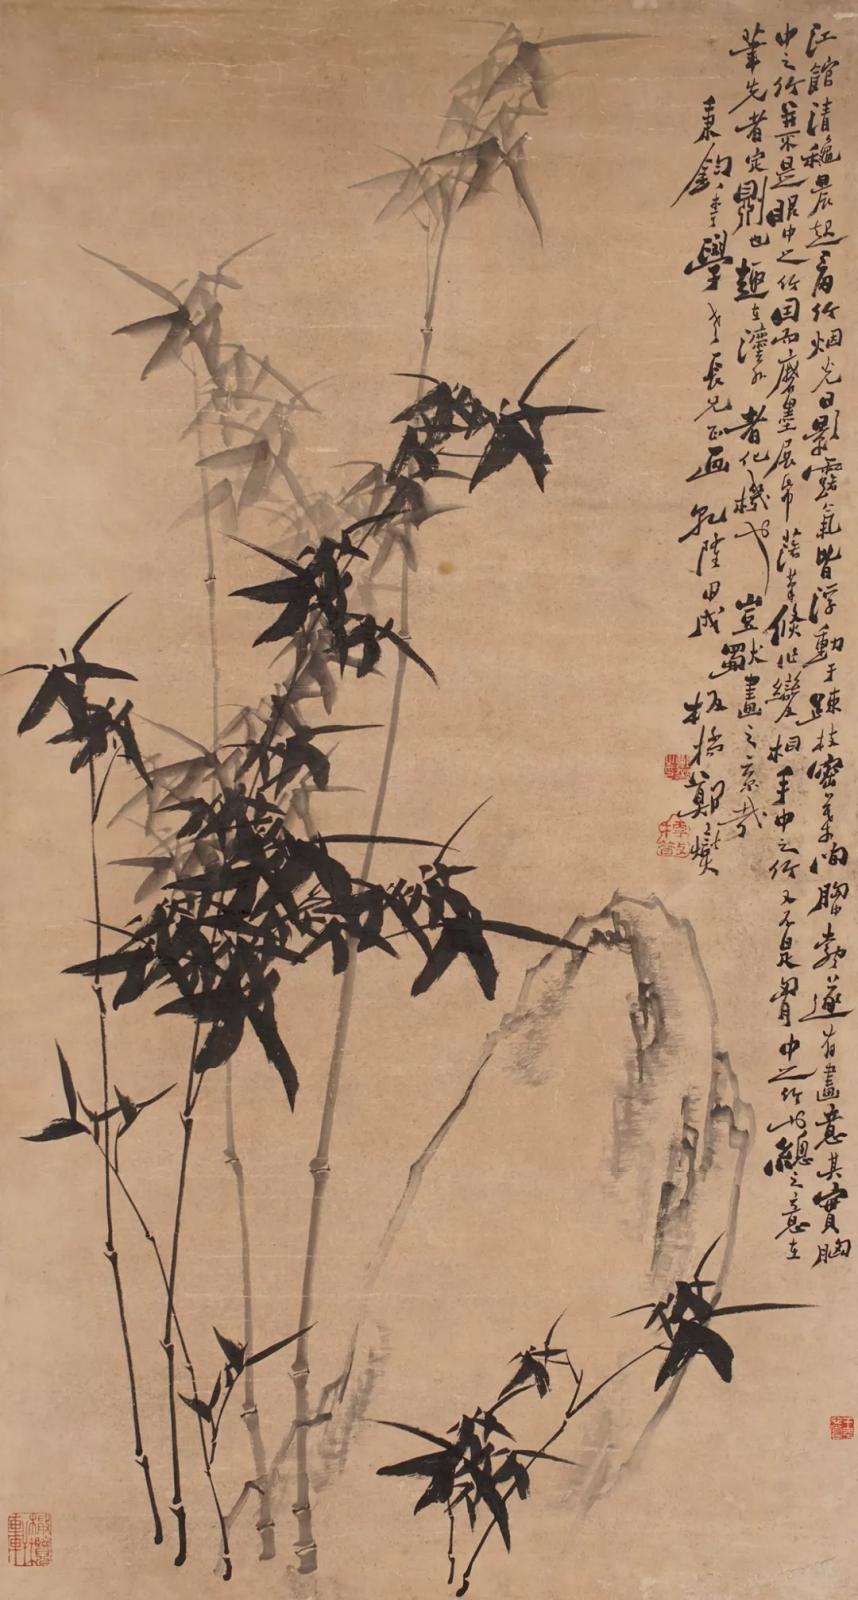 江館清秋晨起看竹烟光日影露氣皆浮動于疎枝密葉間胸中勃勃遂有畫意其實胸
中之竹並不是眼中之竹因而磨墨展帋落筆倏作變相手中之竹又不是胸中之竹也總之意在
筆先者定則也趣在灋外者化機也豈獨畫之意哉
秉鈞學老長兄正画乾隆甲戌板橋鄭燮
橄欖軒